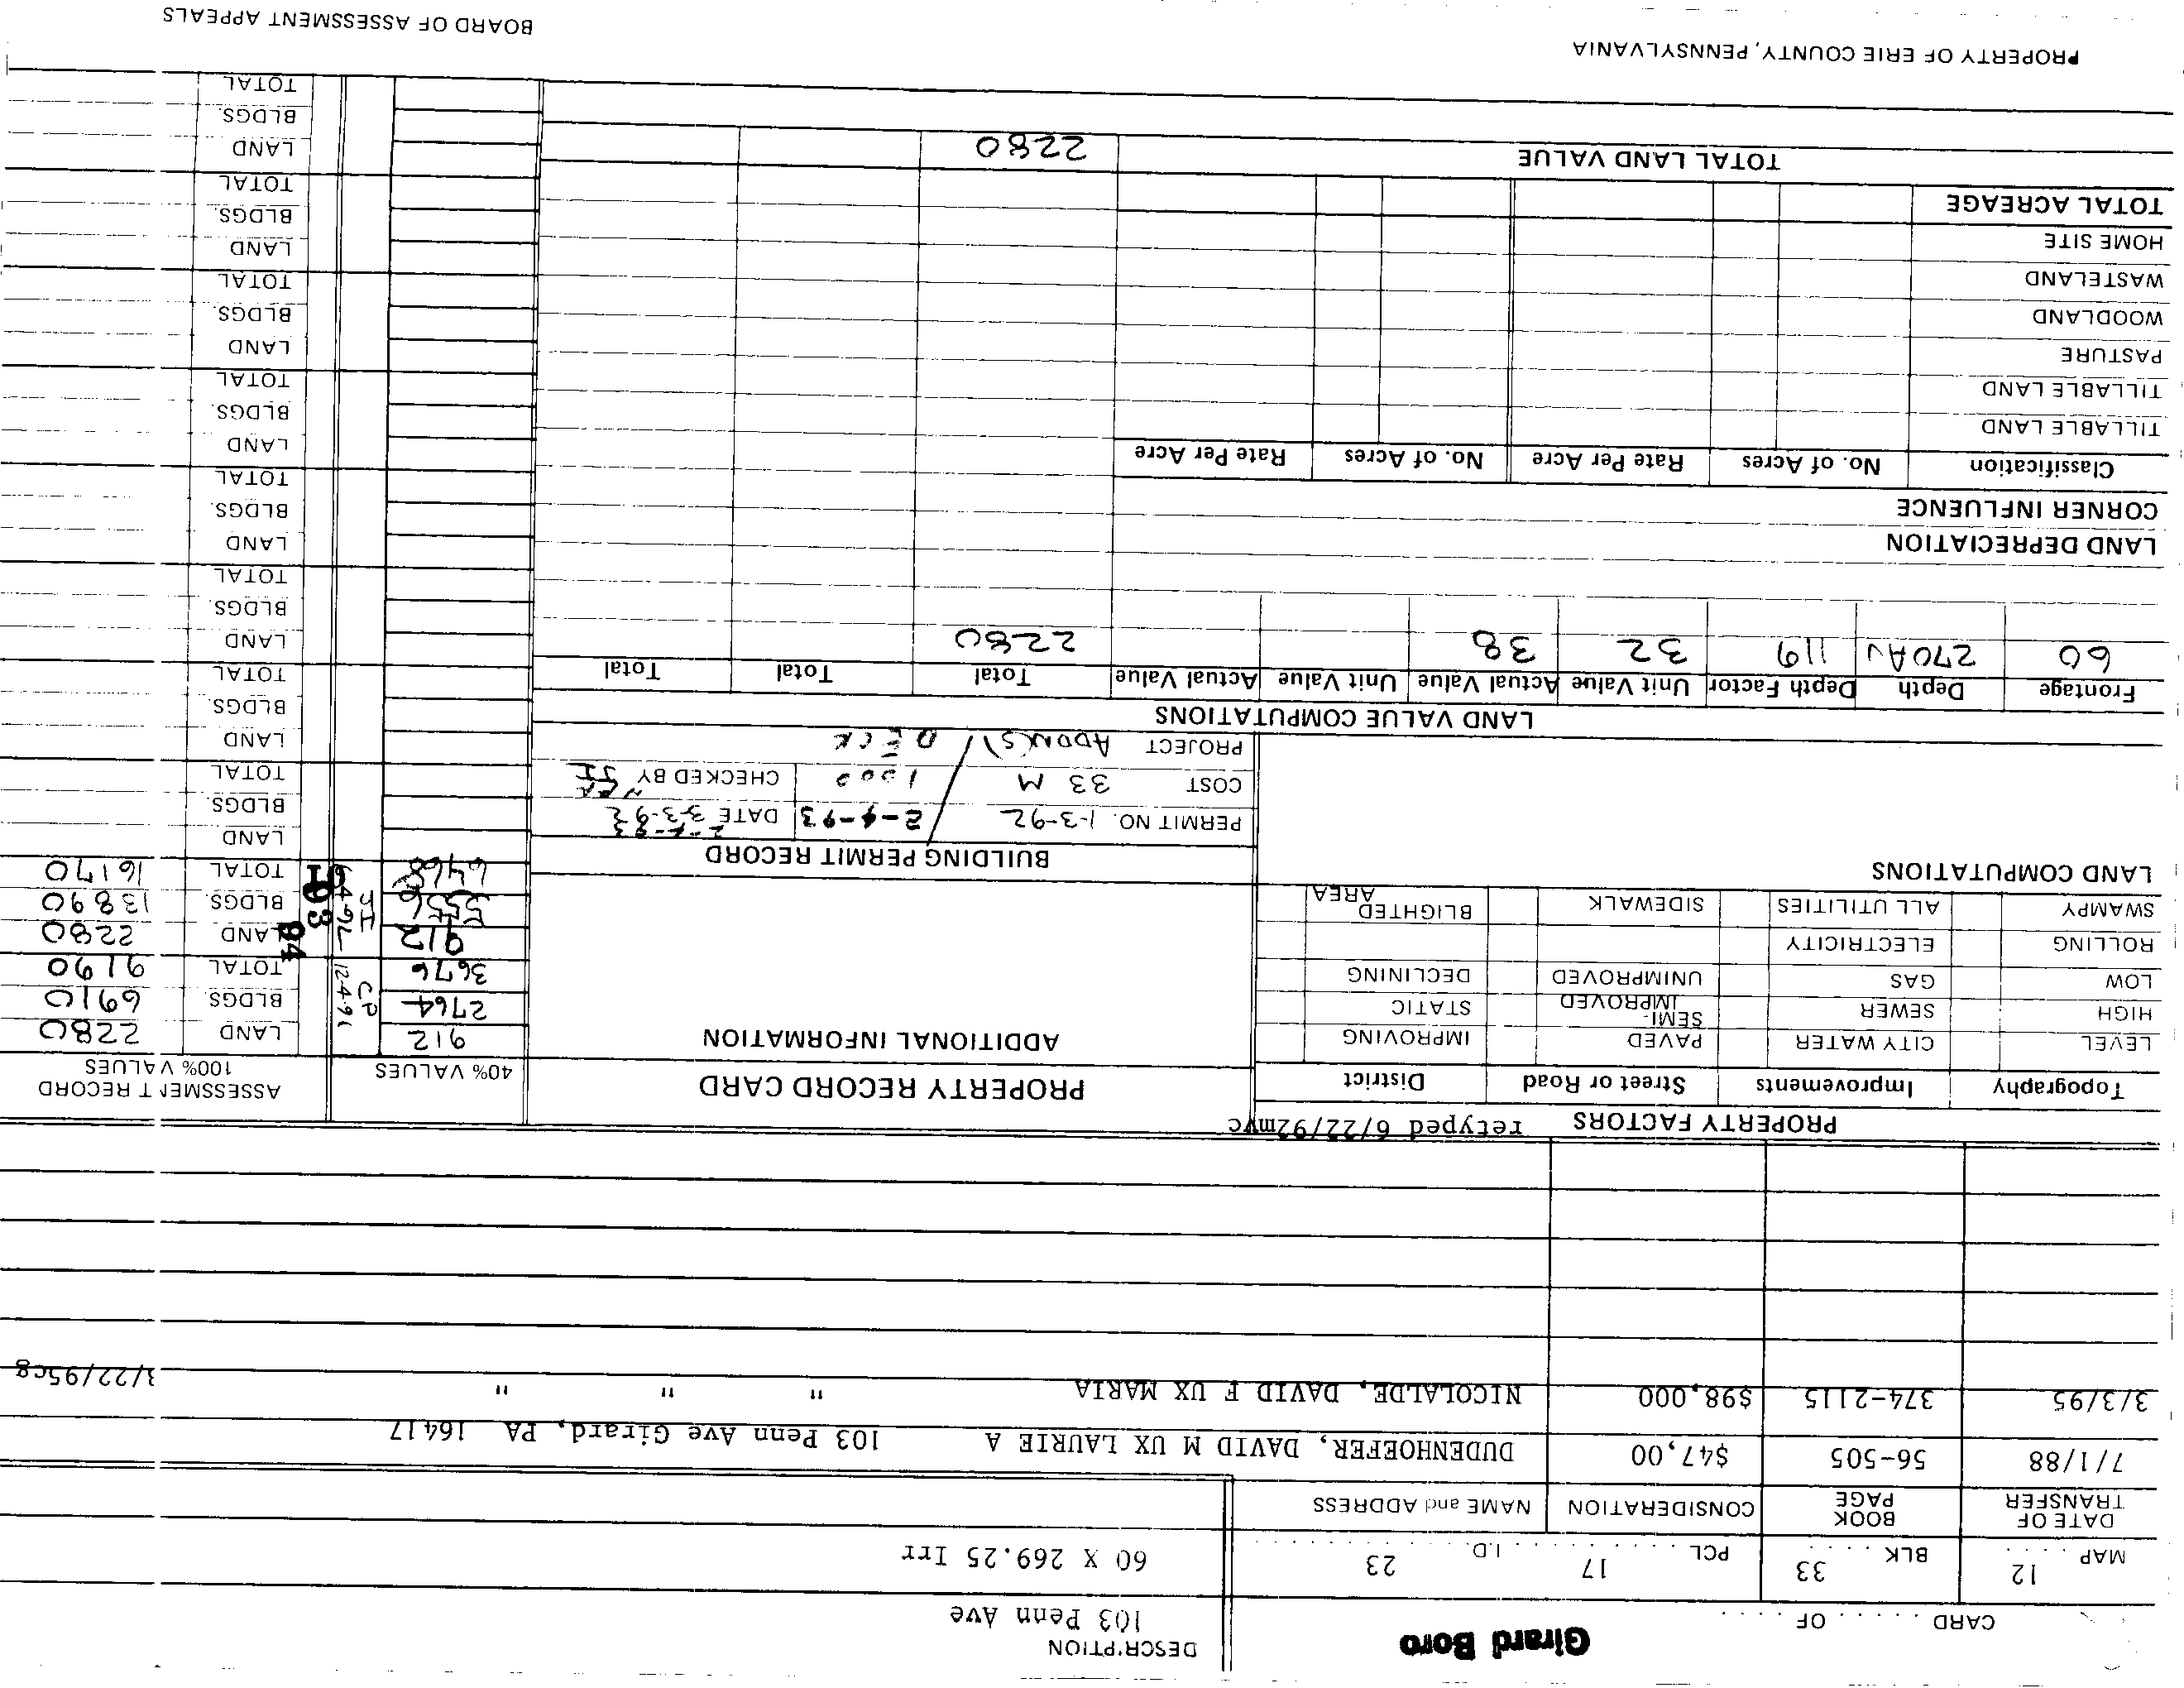 Girard Boro
CARD ...... OF ......
DESCRIPTION
103 Penn Ave
MAP 12 BLK 33 PCL 17 I.D. 23
60 X 269.25 Irr
DATE OF TRANSFER BOOK PAGE CONSIDERATION NAME and ADDRESS
7/1/88 56-505 $47,00 DUDENHOEFER, DAVID M UX LAURIE A 103 Penn Ave Girard, PA 16417
3/3/95 374-2115 $98,000 NICOLALDE, DAVID F UX MARIA " " " 3/22/95cg
PROPERTY FACTORS retyped 6/22/92mvc
Topography Improvements Street or Road District
LEVEL CITY WATER PAVED IMPROVING
HIGH SEWER SEMI-IMPROVED STATIC
LOW GAS UNIMPROVED DECLINING
ROLLING ELECTRICITY
SWAMPY ALL UTILITIES SIDEWALK BLIGHTED AREA
LAND COMPUTATIONS
PROPERTY RECORD CARD
ADDITIONAL INFORMATION
BUILDING PERMIT RECORD
PERMIT NO. 1-3-92 / 2-4-93 DATE 3-3-92
COST 33 M / 1000 CHECKED BY JI
PROJECT ADDN(S) / DECK
40% VALUES
912
2764
3676
912
5556
6468
CP 12-4-91
JI
93
94
ASSESSMENT RECORD
100% VALUES
LAND 2280
BLDGS. 6910
TOTAL 9190
LAND 2280
BLDGS. 13890
TOTAL 16170
LAND
BLDGS.
TOTAL
LAND
BLDGS.
TOTAL
LAND
BLDGS.
TOTAL
LAND
BLDGS.
TOTAL
LAND
BLDGS.
TOTAL
LAND
BLDGS.
TOTAL
LAND
BLDGS.
TOTAL
LAND
BLDGS.
TOTAL
LAND VALUE COMPUTATIONS
Frontage Depth Depth Factor Unit Value Actual Value Unit Value Actual Value Total Total Total
60 270AV 119 32 38 2280
LAND DEPRECIATION
CORNER INFLUENCE
Classification No. of Acres Rate Per Acre No. of Acres Rate Per Acre
TILLABLE LAND
TILLABLE LAND
PASTURE
WOODLAND
WASTELAND
HOME SITE
TOTAL ACREAGE
TOTAL LAND VALUE 2280
PROPERTY OF ERIE COUNTY, PENNSYLVANIA
BOARD OF ASSESSMENT APPEALS